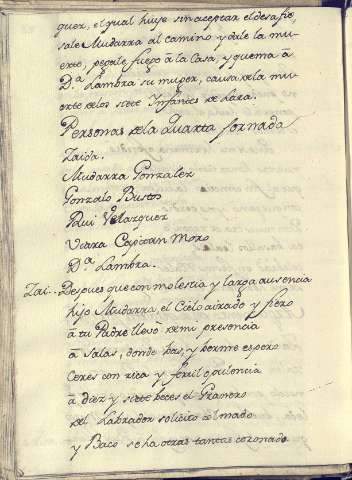 quez, el qual huye sin aceptar el desafio,
sale Mudarra al camino y dale la mu-
erte, pegale fuego à la Casa, y quema à
D.ª Lambra su muger, causa de la mu-
erte de los siete Infantes de Lara.
Personas de la Quarta Jornada
Zaida.
Mudarra Gonzalez
Gonzalo Bustos
Rui Velazquez
Viara Capitan Moro
D.ª Lambra.
Zai.. Despues que con molestia y larga ausencia
hijo Mudarra, el Cielo airado y fiero
à tu Padre llevó de mi presencia
à Salas, donde has, y verme espero
Ceres con rica y fertil opulencia
à diez y siete veces el Granero
del Labrador solicito colmado
y Baco se ha otras tantas coronado